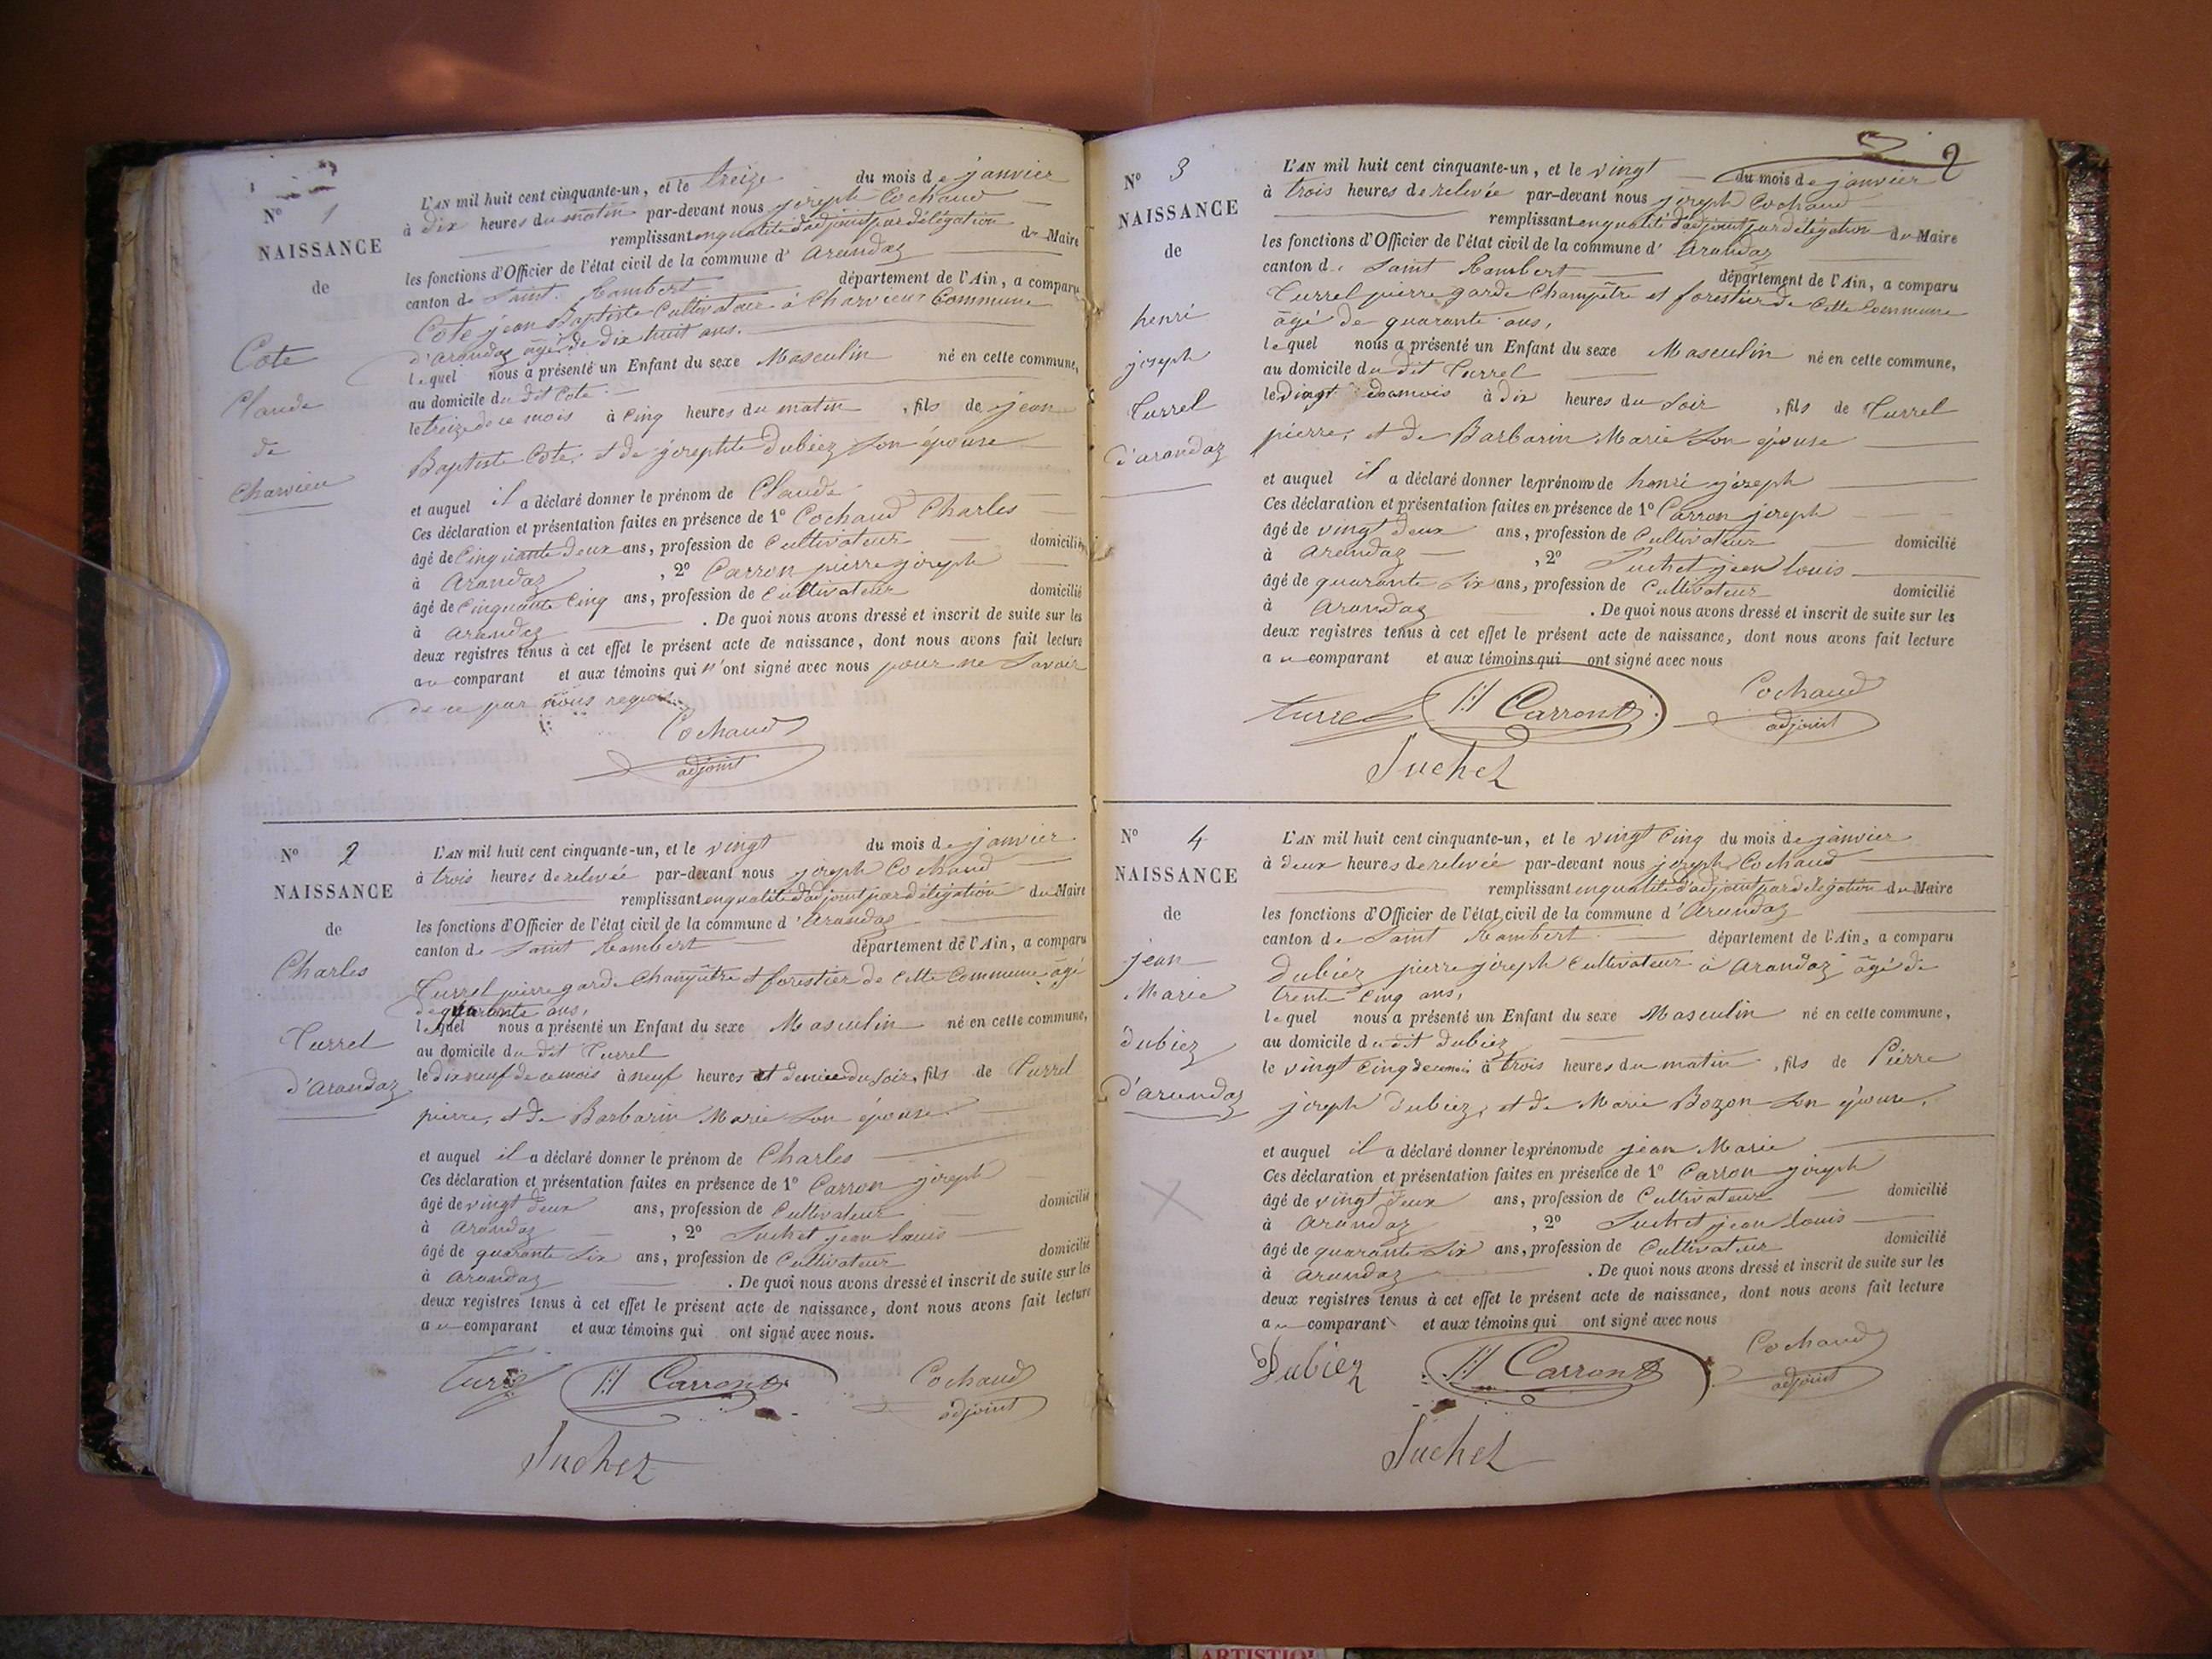 N° 1
NAISSANCE
de
Cote
Claude
de
Charvieu
L'AN mil huit cent cinquante-un, et le treize du mois de janvier
à dix heures du matin par-devant nous joseph Cochaud
remplissant en qualité d'adjoint par délégation du Maire
les fonctions d'Officier de l'état civil de la commune d' Arandaz
canton de Saint Rambert département de l'Ain, a comparu
Cote jean Baptiste Cultivateur à Charvieux Commune
d'Arandaz âgé de dix huit ans.
lequel nous a présenté un Enfant du sexe Masculin né en cette commune,
au domicile du dit Cote
le treize de ce mois à Cinq heures du matin, fils de jean
Baptiste Cote, et de josephte Dubiez son épouse
et auquel il a déclaré donner le prénom de Claude
Ces déclaration et présentation faites en présence de 1° Cochaud Charles
âgé de Cinquante deux ans, profession de Cultivateur domicilié
à Arandaz, 2° Carron pierre joseph
âgé de Cinquante Cinq ans, profession de Cultivateur domicilié
à Arandaz. De quoi nous avons dressé et inscrit de suite sur les
deux registres tenus à cet effet le présent acte de naissance, dont nous avons fait lecture
au comparant et aux témoins qui n'ont signé avec nous pour ne Savoir
de ce par nous requis
Cochaud
adjoint
N° 2
NAISSANCE
de
Charles
Turrel
d'Arandaz
L'AN mil huit cent cinquante-un, et le vingt du mois de janvier
à trois heures de relevée par-devant nous joseph Cochaud
remplissant en qualité d'adjoint par délégation du Maire
les fonctions d'Officier de l'état civil de la commune d'Arandaz
canton de Saint Rambert département de l'Ain, a comparu
Turrel pierre garde Champêtre et forestier de Cette Commune âgé
de quarante ans,
lequel nous a présenté un Enfant du sexe Masculin né en cette commune,
au domicile du dit Turrel
le dix neuf de ce mois à neuf heures et demie du soir, fils de Turrel
pierre, et de Barbarin Marie son épouse
et auquel il a déclaré donner le prénom de Charles
Ces déclaration et présentation faites en présence de 1° Carron joseph
âgé de vingt deux ans, profession de Cultivateur domicilié
à Arandaz, 2° Suchet jean louis
âgé de quarante six ans, profession de Cultivateur domicilié
à Arandaz. De quoi nous avons dressé et inscrit de suite sur les
deux registres tenus à cet effet le présent acte de naissance, dont nous avons fait lecture
au comparant et aux témoins qui ont signé avec nous.
Carron Cochaud
adjoint
Suchet
2
N° 3
NAISSANCE
de
henri
joseph
Turrel
d'arandaz
L'AN mil huit cent cinquante-un, et le vingt du mois de janvier
à trois heures de relevée par-devant nous joseph Cochaud
remplissant en qualité d'adjoint par délégation du Maire
les fonctions d'Officier de l'état civil de la commune d' Arandaz
canton de Saint Rambert département de l'Ain, a comparu
Turrel pierre garde Champêtre et forestier de Cette Commune
âgé de quarante ans,
lequel nous a présenté un Enfant du sexe Masculin né en cette commune,
au domicile du dit Turrel
le vingt du mois à dix heures du soir, fils de Turrel
pierre, et de Barbarin Marie son épouse
et auquel il a déclaré donner les prénoms de henri joseph
Ces déclaration et présentation faites en présence de 1° Carron joseph
âgé de vingt deux ans, profession de Cultivateur domicilié
à Arandaz, 2° Suchet jean louis
âgé de quarante six ans, profession de Cultivateur domicilié
à Arandaz. De quoi nous avons dressé et inscrit de suite sur les
deux registres tenus à cet effet le présent acte de naissance, dont nous avons fait lecture
au comparant et aux témoins qui ont signé avec nous
Turrel Carron Cochaud
adjoint
Suchet
N° 4
NAISSANCE
de
jean
Marie
dubiez
d'arandaz
L'AN mil huit cent cinquante-un, et le vingt Cinq du mois de janvier
à deux heures de relevée par-devant nous joseph Cochaud
remplissant en qualité d'adjoint par délégation du Maire
les fonctions d'Officier de l'état civil de la commune d'Arandaz
canton de Saint Rambert département de l'Ain, a comparu
dubiez pierre joseph Cultivateur à Arandaz âgé de
trente Cinq ans,
lequel nous a présenté un Enfant du sexe Masculin né en cette commune,
au domicile du dit dubiez
le vingt Cinq de ce mois à trois heures du matin, fils de Pierre
joseph dubiez, et de Marie Bozon son épouse,
et auquel il a déclaré donner les prénoms de jean Marie
Ces déclaration et présentation faites en présence de 1° Carron joseph
âgé de vingt deux ans, profession de Cultivateur domicilié
à Arandaz, 2° Suchet jean louis
âgé de quarante six ans, profession de Cultivateur domicilié
à Arandaz. De quoi nous avons dressé et inscrit de suite sur les
deux registres tenus à cet effet le présent acte de naissance, dont nous avons fait lecture
au comparant et aux témoins qui ont signé avec nous
Dubiez Carron Cochaud
adjoint
Suchet